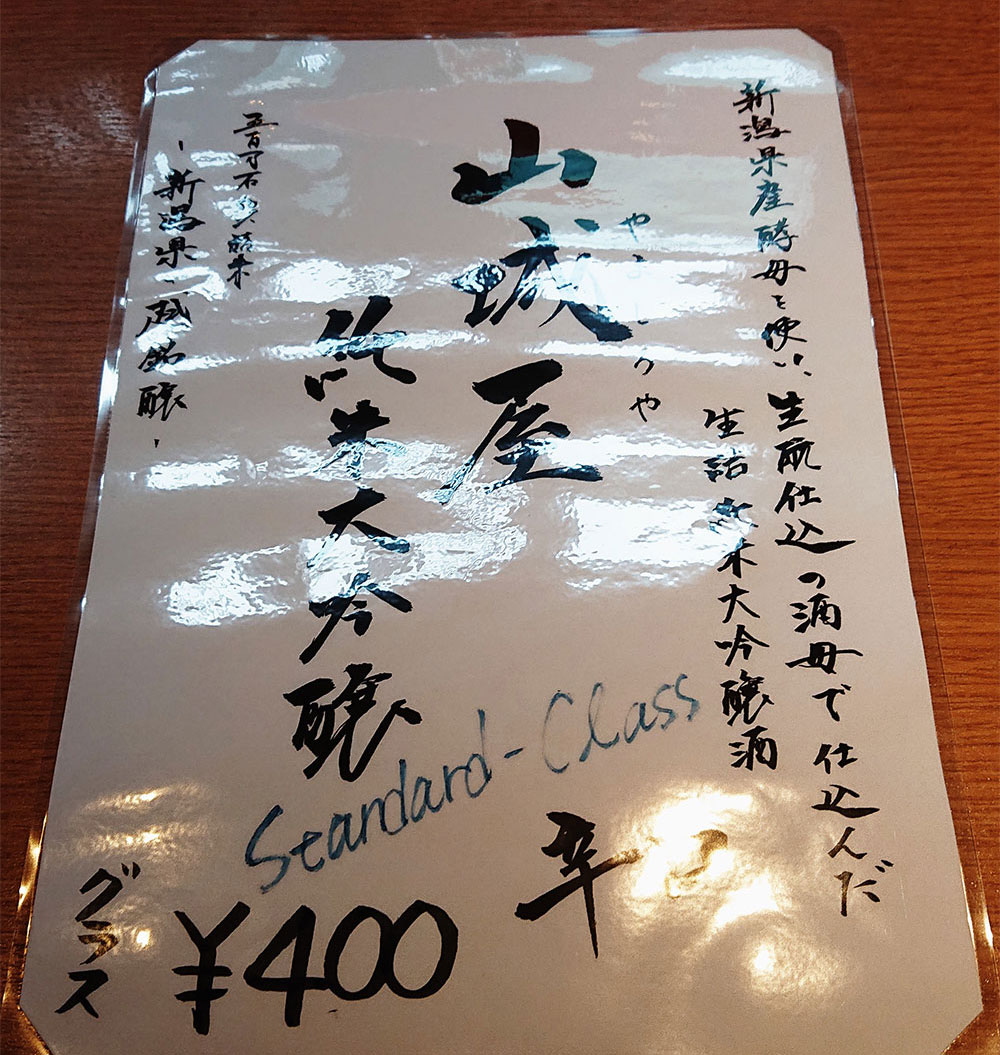 新潟県産酵母を使い、生酛仕込の酒母で仕込んだ
生詰純米大吟醸酒
やましろや
山城屋
純米大吟醸
Standard-Class
辛口
五百万石
-新潟県・越銘醸-
グラス
¥400